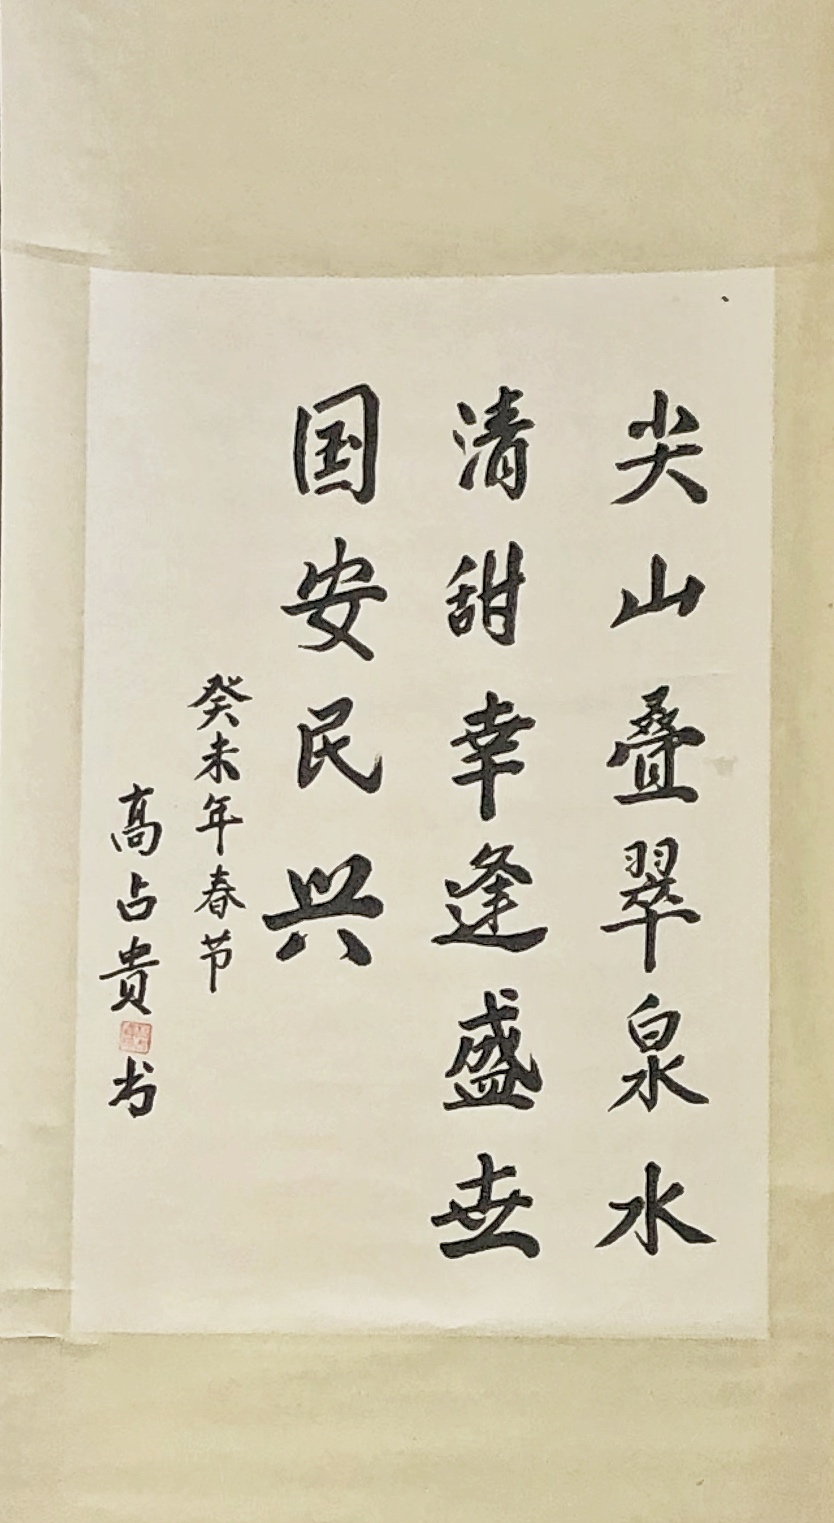 尖山叠翠泉水
清甜幸逢盛世
国安民兴
癸未年春节
高占贵书